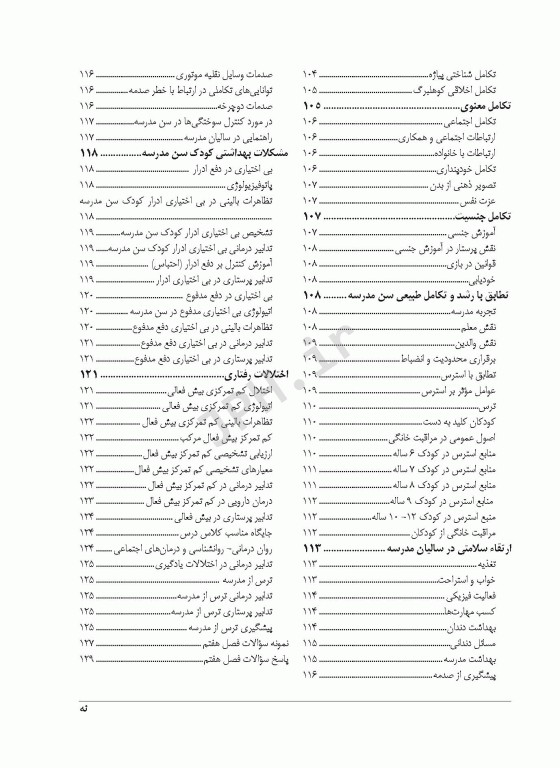 تکامل شناختی پیاژه ۱۰۴
تکامل اخلاقی کوهلبرگ ۱۰۵
تکامل معنوی ۱۰۵
تکامل اجتماعی ۱۰۶
ارتباطات اجتماعی و همکاری ۱۰۶
ارتباطات با خانواده ۱۰۶
تکامل خودپنداری ۱۰۶
تصویر ذهنی از بدن ۱۰۷
عزت نفس ۱۰۷
تکامل جنسیت ۱۰۷
آموزش جنسی ۱۰۷
نقش پرستار در آموزش جنسی ۱۰۸
قوانین در بازی ۱۰۸
خودیابی ۱۰۸
تطابق با رشد و تکامل طبیعی سن مدرسه ۱۰۸
تجربه مدرسه ۱۰۸
نقش معلم ۱۰۸
نقش والدین ۱۰۹
برقراری محدودیت و انضباط ۱۰۹
تطابق با استرس ۱۰۹
عوامل مؤثر بر استرس ۱۰۹
ترس ۱۱۰
کودکان کلید به دست ۱۱۰
اصول عمومی در مراقبت خانگی ۱۱۰
منابع استرس در کودک ۶ ساله ۱۱۰
منابع استرس در کودک ۷ ساله ۱۱۱
منابع استرس در کودک ۸ ساله ۱۱۱
منابع استرس در کودک ۹ ساله ۱۱۲
منبع استرس در کودک ۱۲-۱۰ ساله ۱۱۲
مراقبت خانگی از کودکان ۱۱۲
ارتقاء سلامتی در سالیان مدرسه ۱۱۳
تغذیه ۱۱۳
خواب و استراحت ۱۱۳
فعالیت فیزیکی ۱۱۴
کسب مهارت‌ها ۱۱۴
بهداشت دندان ۱۱۴
مسائل دندانی ۱۱۵
بهداشت مدرسه ۱۱۵
پیشگیری از صدمه ۱۱۶
صدمات وسایل نقلیه موتوری ۱۱۶
توانایی‌های تکاملی در ارتباط با خطر صدمه ۱۱۶
صدمات دوچرخه ۱۱۶
در مورد کنترل سوختگی‌ها در سن مدرسه ۱۱۷
راهنمایی در سالیان مدرسه ۱۱۷
مشکلات بهداشتی کودک سن مدرسه ۱۱۸
بی اختیاری در دفع ادرار ۱۱۸
پاتوفیزیولوژی ۱۱۸
تظاهرات بالینی در بی اختیاری ادرار کودک سن مدرسه
۱۱۸
تشخیص بی اختیاری ادرار کودک سن مدرسه ۱۱۹
تدابیر درمانی بی اختیاری ادرار کودک سن مدرسه ۱۱۹
آموزش کنترل بر دفع ادرار (احتباس) ۱۱۹
تدابیر پرستاری در بی اختیاری ادرار ۱۱۹
بی اختیاری در دفع مدفوع ۱۲۰
اتیولوژی بی اختیاری مدفوع در سن مدرسه ۱۲۰
تظاهرات بالینی در بی اختیاری دفع مدفوع ۱۲۰
تدابیر درمانی در بی اختیاری دفع مدفوع ۱۲۱
تدابیر پرستاری در بی اختیاری دفع مدفوع ۱۲۱
اختلالات رفتاری ۱۲۱
اختلال کم تمرکزی بیش فعالی ۱۲۱
اتیولوژی کم تمرکزی بیش فعالی ۱۲۱
تظاهرات بالینی کم تمرکزی بیش فعال ۱۲۲
کم تمرکز بیش فعال مرکب ۱۲۲
ارزیابی تشخیصی کم تمرکز بیش فعال ۱۲۲
معیارهای تشخیصی کم تمرکز بیش فعال ۱۲۲
تدابیر درمانی در کم تمرکز بیش فعال ۱۲۲
درمان دارویی در کم تمرکز بیش فعال ۱۲۳
تدابیر پرستاری در بیش فعالی ۱۲۴
جایگاه مناسب کلاس درس ۱۲۴
روان درمانی- روانشناسی و درمان‌های اجتماعی ۱۲۴
تدابیر درمانی در اختلالات یادگیری ۱۲۵
ترس از مدرسه ۱۲۵
تدابیر درمانی ترس از مدرسه ۱۲۵
تدابیر پرستاری ترس از مدرسه ۱۲۵
پیشگیری ترس از مدرسه ۱۲۵
نمونه سؤالات فصل هفتم ۱۲۷
پاسخ سؤالات فصل هفتم ۱۲۹
نه